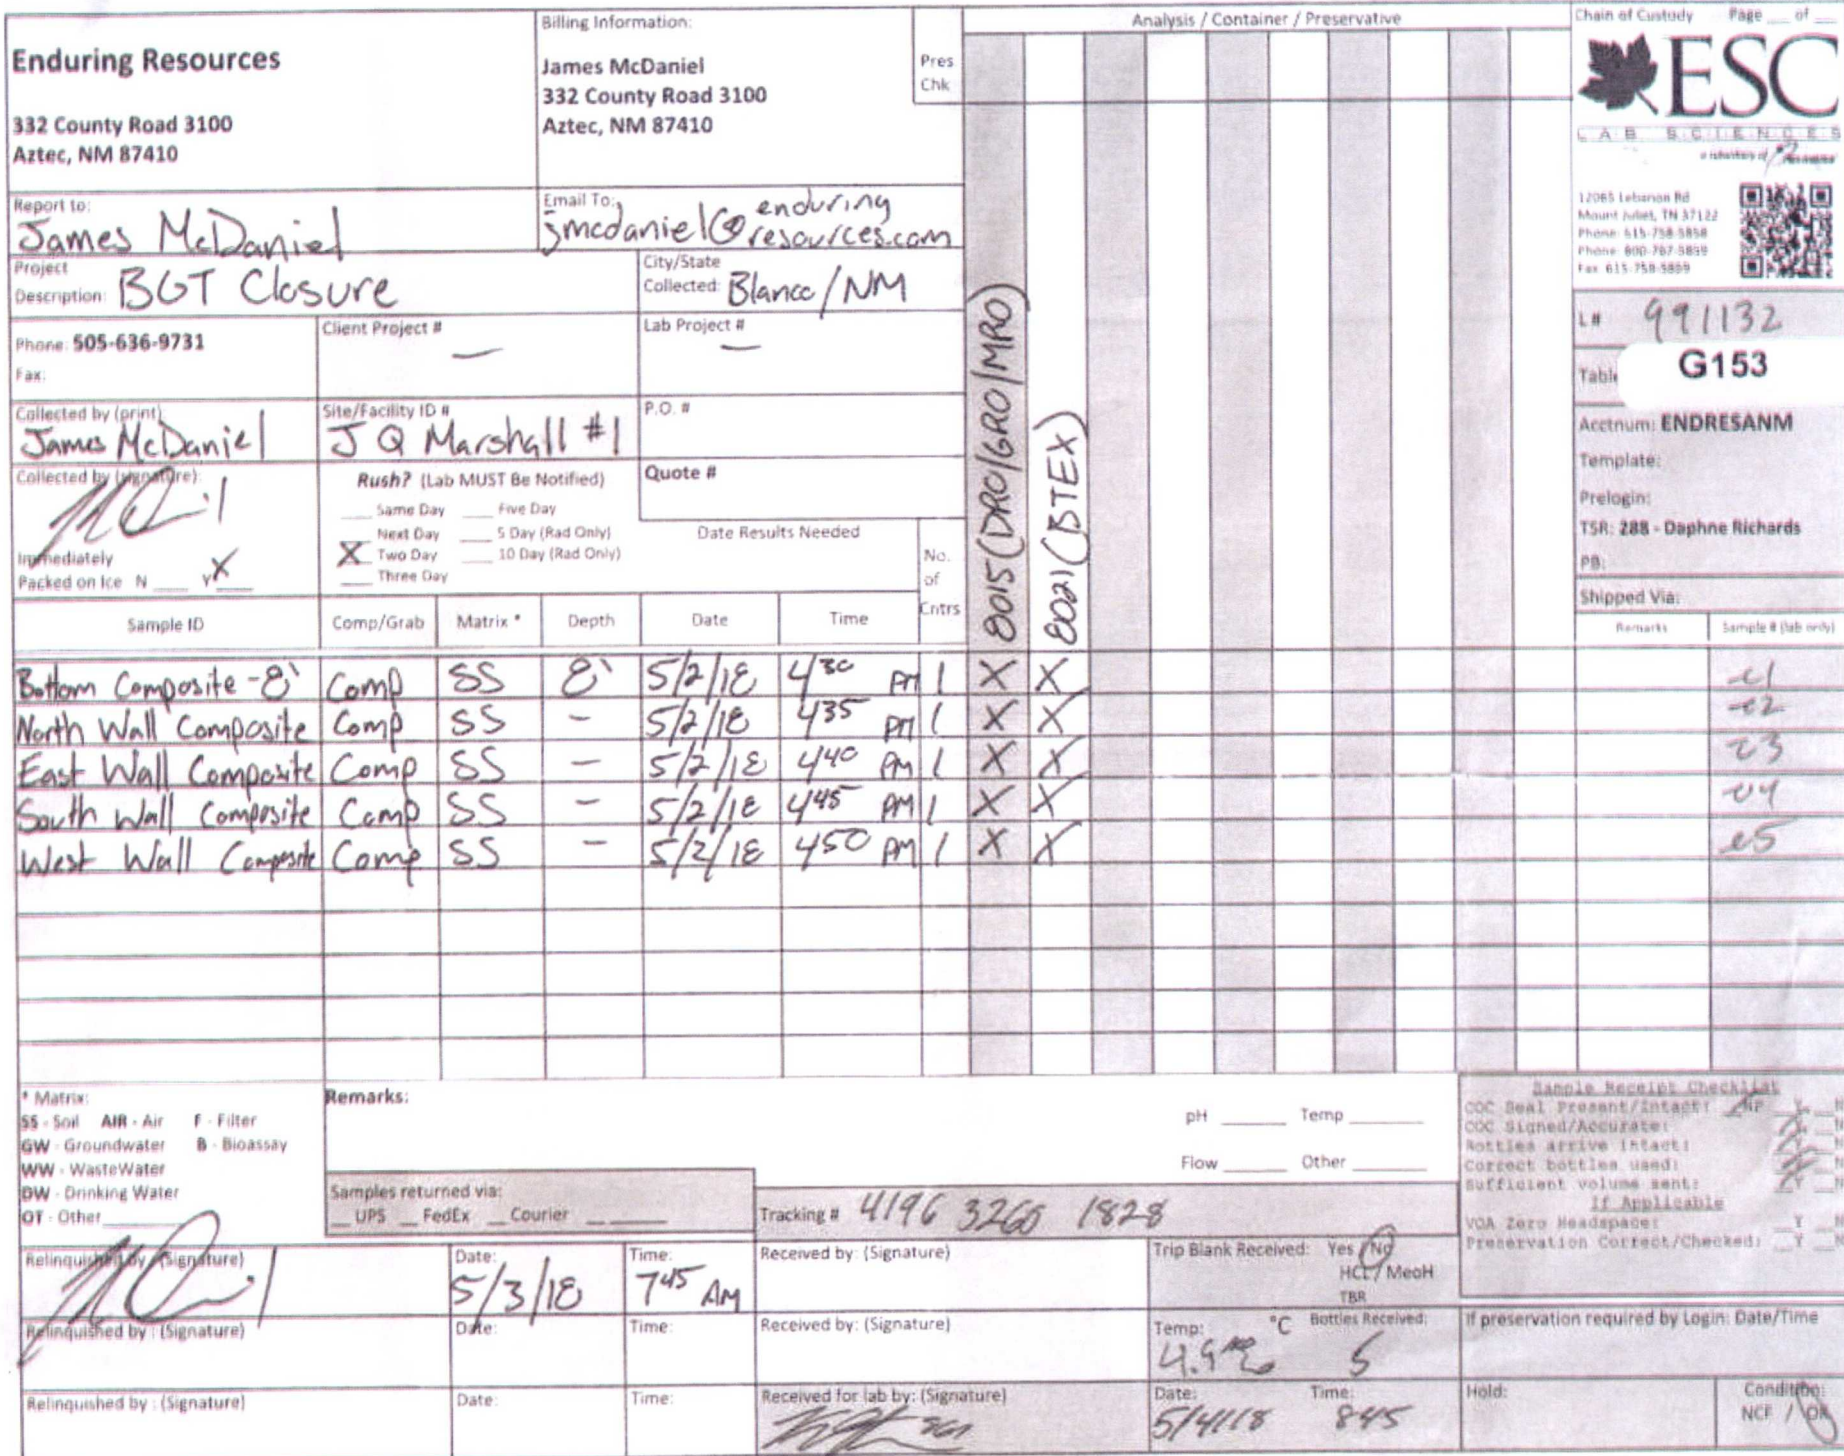 Enduring Resources
332 County Road 3100
Aztec, NM 87410
Billing Information:
James McDaniel
332 County Road 3100
Aztec, NM 87410
Pres
Chk
Analysis / Container / Preservative
Chain of Custody Page ___ of ___
ESC
LAB SCIENCES
a subsidiary of
12065 Lebanon Rd
Mount Juliet, TN 37122
Phone: 615-758-5858
Phone: 800-767-5859
Fax: 615-758-5859
Report to:
James McDaniel
Email To:
jmcdaniel@enduring
resources.com
Project
Description: BGT Closure
City/State
Collected: Blanco/NM
Phone: 505-636-9731
Fax:
Client Project #
—
Lab Project #
—
L# 991132
Table G153
Collected by (print):
James McDaniel
Site/Facility ID #
J Q Marshall #1
P.O. #
Acctnum: ENDRESANM
Template:
Prelogin:
TSR: 288 - Daphne Richards
PB:
Shipped Via:
Collected by (signature):
Immediately
Packed on Ice N ___ Y X
Rush? (Lab MUST Be Notified)
___ Same Day ___ Five Day
___ Next Day ___ 5 Day (Rad Only)
X Two Day ___ 10 Day (Rad Only)
___ Three Day
Quote #
Date Results Needed
No.
of
Cntrs
8015 (DRO/GRO/MRO)
8021 (BTEX)
Sample ID Comp/Grab Matrix * Depth Date Time Remarks Sample # (lab only)
Bottom Composite-8' Comp SS 8' 5/2/18 430 PM 1 X X -01
North Wall Composite Comp SS - 5/2/18 435 PM 1 X X -02
East Wall Composite Comp SS - 5/2/18 440 PM 1 X X 03
South Wall Composite Comp SS - 5/2/18 445 PM 1 X X 04
West Wall Composite Comp SS - 5/2/18 450 PM 1 X X 05
* Matrix:
SS - Soil AIR - Air F - Filter
GW - Groundwater B - Bioassay
WW - WasteWater
DW - Drinking Water
OT - Other
Remarks:
pH ___ Temp ___
Flow ___ Other ___
Samples returned via:
__ UPS __ FedEx __ Courier __
Tracking # 4196 3260 1828
Sample Receipt Checklist
COC Seal Present/Intact: NP Y N
COC Signed/Accurate: Y N
Bottles arrive intact: Y N
Correct bottles used: Y N
Sufficient volume sent: Y N
If Applicable
VOA Zero Headspace: Y N
Preservation Correct/Checked: Y N
Relinquished by : (Signature)
Date:
5/3/18
Time:
745 AM
Received by: (Signature)
Trip Blank Received: Yes / No
HCL / MeoH
TBR
Relinquished by : (Signature)
Date:
Time:
Received by: (Signature)
Temp: °C
4.9
Bottles Received:
5
If preservation required by Login: Date/Time
Relinquished by : (Signature)
Date:
Time:
Received for lab by: (Signature)
Date:
5/4/18
Time:
845
Hold:
Condition:
NCF / OK